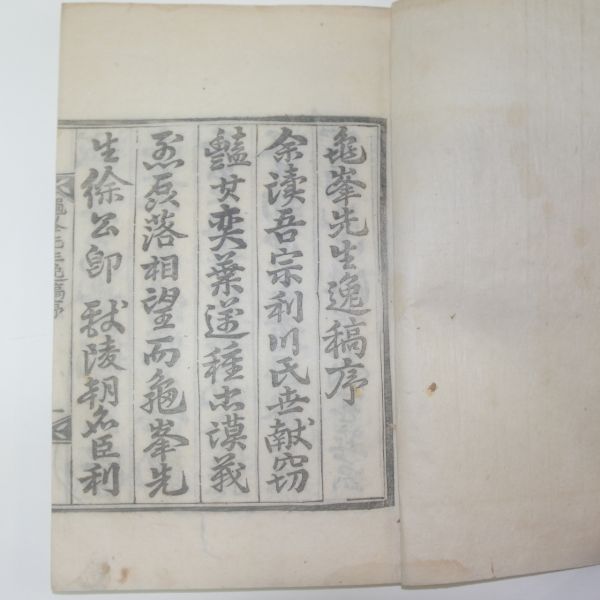 龜峯先生逸稿序
余讀吾宗利川氏世献窃
豔其奕葉遞種忠謨義
烈落相望而龜峯先
生徐公卽 献陵朝名臣利
龜峯先生逸稿序